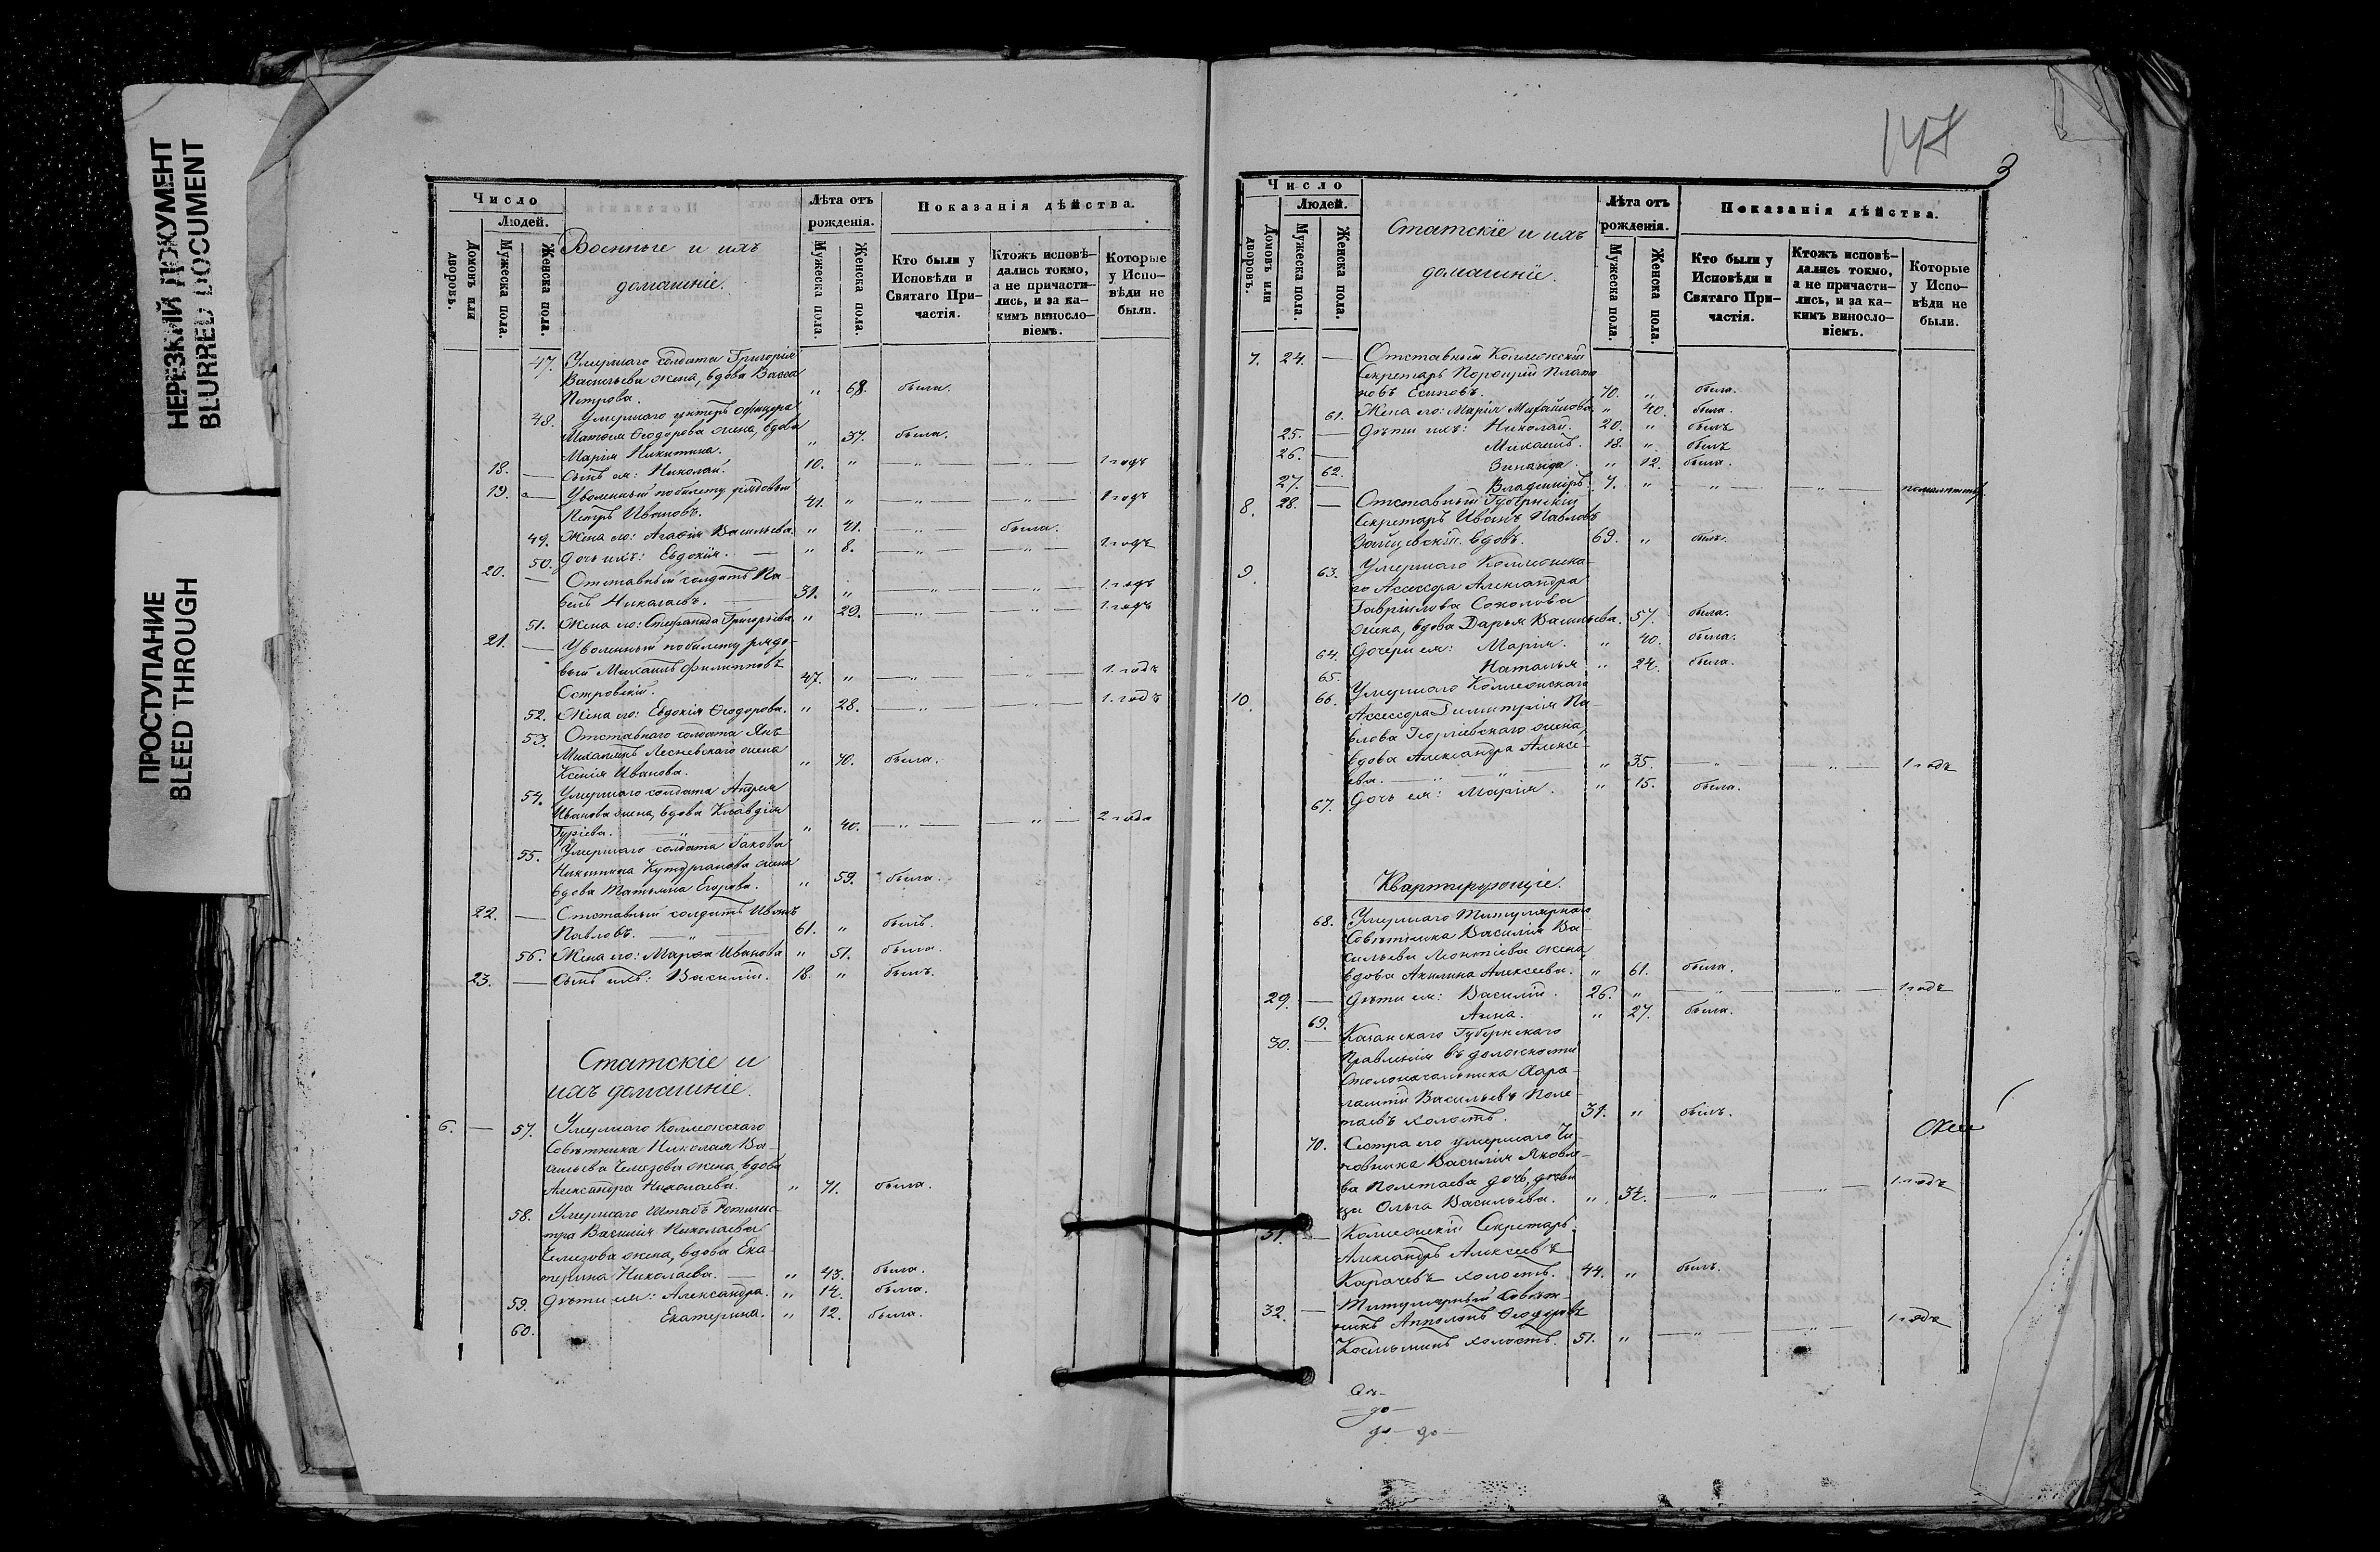 НЕРЕЗКИЙ ДОКУМЕНТ
BLURRED DOCUMENT
ПРОСТУПАНИЕ
BLEED THROUGH
Число
Людей.
Домовъ или дворовъ.
Мужеска пола.
Женска пола.
Военные и ихъ
домашніе.
Лѣта отъ рожденія.
Мужеска пола.
Женска пола.
Показанія дѣйства.
Кто были у Исповѣди и Святаго Причастія.
Ктожъ исповѣдались токмо, а не причастились, и за какимъ винословіемъ.
Которые у Исповѣди не были.
47. Умершаго солдата Григорія
Васильева жена, вдова Васса
Петрова. „ 68. была.
48. Умершаго унтеръ офицера
Матвея Ѳеодорова жена, вдова
Марія Никитина. „ 37. была.
18. — Сынъ ея: Николай. 10. „ — „ — — „ — 1 годъ
19. — Уволенный по билету рядовый
Петръ Ивановъ. 41. „ — „ — — „ — 1 годъ
49. Жена его: Агафія Васильева. „ 41. — „ — была.
50. Дочь ихъ: Евдокія. — „ 8. — „ — — „ — 1 годъ
20. — Отставный солдатъ Па-
велъ Николаевъ. 31. „ — „ — — „ — 1 годъ
51. Жена его: Степанида Григорьева. „ 29. — „ — — „ — 1 годъ
21. — Уволенный по билету рядо-
вый Михаилъ Филипповъ
Островскій. 47. „ — „ — — „ — 1 годъ
52. Жена его: Евдокія Ѳеодорова. „ 28. — „ — — „ — 1 годъ
53. Отставнаго солдата Янъ
Михаиленъ Лесневскаго жена
Ксенія Иванова. „ 40. была.
54. Умершаго солдата Андрея
Иванова жена, вдова Клавдія
Гуріева. „ 40. — „ — — „ — 2 года
55. Умершаго солдата Іакова
Никитина жена
вдова Татьяна Егорова. „ 59. была.
22. — Отставный солдатъ Иванъ
Павловъ. — „ — 61. „ былъ.
56. Жена его: Марѳа Иванова „ 51. была.
23. — Сынъ ихъ: Василій. 18. „ былъ.
Статскіе и
ихъ домашніе.
6. — 57. Умершаго Коллежскаго
Совѣтника Николая Ва-
сильева Чемезова жена, вдова
Александра Николаева. „ 71. была.
58. Умершаго Штабъ Ротмис-
тра Василія Николаева
Чемезова жена, вдова Ека-
терина Николаева. — „ 43. была.
59. Дѣти ея: Александра. „ 14. была.
60. Екатерина. „ 12. была.
147
3
Число
Людей.
Домовъ или дворовъ.
Мужеска пола.
Женска пола.
Статскіе и ихъ
домашніе.
Лѣта отъ рожденія.
Мужеска пола.
Женска пола.
Показанія дѣйства.
Кто были у Исповѣди и Святаго Причастія.
Ктожъ исповѣдались токмо, а не причастились, и за какимъ винословіемъ.
Которые у Исповѣди не были.
7. 24. — Отставный Коллежскій
Секретарь Порфирій Плато
новъ Есиповъ. 70. „ была.
61. Жена его: Марія Михайлова. „ 40. была.
25. — Дѣти ихъ: Николай. 20. „ былъ
26. — Михаилъ. 18. „ былъ
62. Зинаида. „ 12. была.
27. — Владиміръ. 7. „ — „ — — „ —
8. 28. — Отставный Губернскій
Секретарь Иванъ Павловъ
Зайцевскій. вдовъ. 69. „ былъ.
9. 63. Умершаго Коллежска-
го Ассесора Александра
Гавріилова Соколова
жена, вдова Дарья Васильева. 57. была.
64. Дочери ея: Марія. „ 40. была.
65. Наталья „ 24. была.
10. 66. Умершаго Коллежскаго
Ассесора Димитрія Па-
влова Георгіевскаго жена,
вдова Александра Алексе-
ева. — „ — „ — „ 35. — „ — — „ — 1 годъ
67. Дочь ея: Марія. „ 15. была.
Квартирующіе.
68. Умершаго Титулярнаго
Совѣтника Василія Ва-
сильева Леонтіева жена,
вдова Акилина Алексеева. „ 61. была.
29. — Дѣти ея: Василій. 26. „ — „ — — „ — 1 годъ
69. Анна. „ 27. была.
30. — Казанскаго Губернскаго
Правленія въ должности
Столоначальника Хара-
лампій Васильевъ Поле-
таевъ холостъ. 31. „ былъ.
70. Сестра его умершаго Чи-
новника Василія Яковле-
ва Полетаева дочь, дѣви
ца Ольга Васильева. „ 34. — „ — — „ — 1 годъ
31. — Коллежскій Секретарь
Александръ Алексеевъ
Карачевъ холостъ. 44. „ былъ.
32. — Титулярный Совѣт-
никъ Апполонъ Ѳеодоровъ
Косьминъ холостъ. 51. „ — „ — — „ — 1 годъ
до —
до — до —